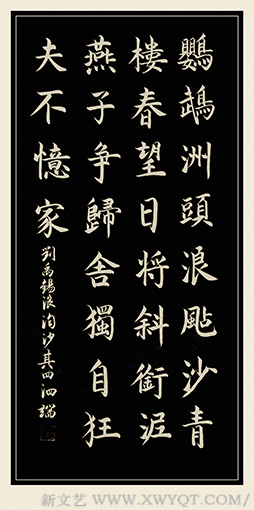 鸚鵡洲頭浪颭沙青
樓春望日將斜銜泥
燕子争歸舍獨自狂
夫不憶家
劉禹錫浪淘沙其四 泗
新文艺 WWW.XWYQT.COM/